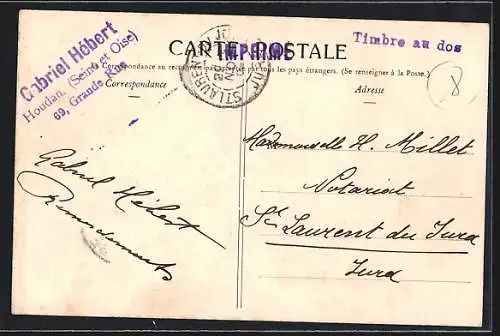 Gabriel Hébert
Houdan. (Seine et Oise)
69, Grande Rue
CARTE POSTALE
IMPRIMÉ
Timbre au dos
La Correspondance au recto par tous les pays étrangers. (Se renseigner à la Poste.)
Correspondance
Adresse
ST LAURENT
JURA
8
Gabriel Hébert
Remerciements
Mademoiselle H. Millet
Notariat
St Laurent du Jura
Jura